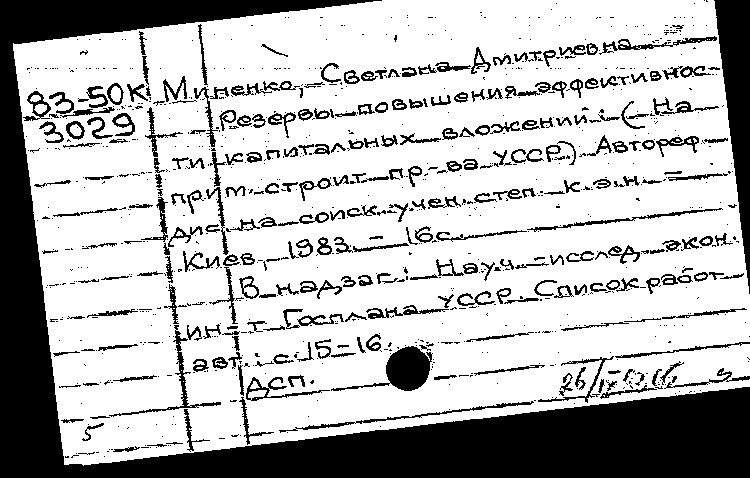 83-50К Миненко, Светлана Дмитриевна
3029 Резервы повышения эффективнос-
ти капитальных вложений: (На
прим. строит. пр-ва УССР) Автореф.
дис на соиск. учен. степ. к.э.н. =
Киев, 1983. - 16с.
В надзаг.: Науч.-исслед. экон.
ин-т Госплана УССР. Список работ
авт.: с.15-16.
ДСП.
26/IX
5